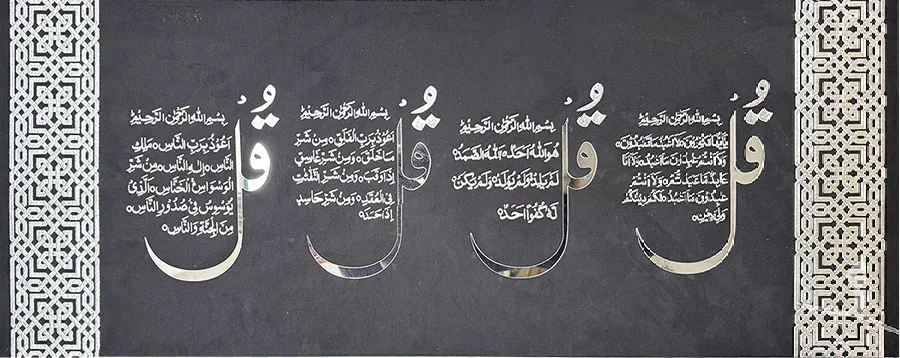 قُلْ
بِسْمِ اللهِ الرَّحْمٰنِ الرَّحِيْمِ
يٰٓاَيُّهَا الْكٰفِرُوْنَ لَآ اَعْبُدُ مَا تَعْبُدُوْنَ
وَلَآ اَنْتُمْ عٰبِدُوْنَ مَآ اَعْبُدُ وَلَآ اَنَا
عَابِدٌ مَّا عَبَدْتُّمْ وَلَآ اَنْتُمْ
عٰبِدُوْنَ مَآ اَعْبُدُ لَكُمْ دِيْنُكُمْ
وَلِيَ دِيْنِ
قُلْ
بِسْمِ اللهِ الرَّحْمٰنِ الرَّحِيْمِ
هُوَ اللهُ اَحَدٌ اَللهُ الصَّمَدُ
لَمْ يَلِدْ وَلَمْ يُوْلَدْ وَلَمْ يَكُنْ
لَهٗ كُفُوًا اَحَدٌ
قُلْ
بِسْمِ اللهِ الرَّحْمٰنِ الرَّحِيْمِ
اَعُوْذُ بِرَبِّ الْفَلَقِ مِنْ شَرِّ
مَا خَلَقَ وَمِنْ شَرِّ غَاسِقٍ
اِذَا وَقَبَ وَمِنْ شَرِّ النَّفّٰثٰتِ
فِى الْعُقَدِ وَمِنْ شَرِّ حَاسِدٍ
اِذَا حَسَدَ
قُلْ
بِسْمِ اللهِ الرَّحْمٰنِ الرَّحِيْمِ
اَعُوْذُ بِرَبِّ النَّاسِ مَلِكِ
النَّاسِ اِلٰهِ النَّاسِ مِنْ شَرِّ
الْوَسْوَاسِ الْخَنَّاسِ الَّذِىْ
يُوَسْوِسُ فِىْ صُدُوْرِ النَّاسِ
مِنَ الْجِنَّةِ وَالنَّاسِ